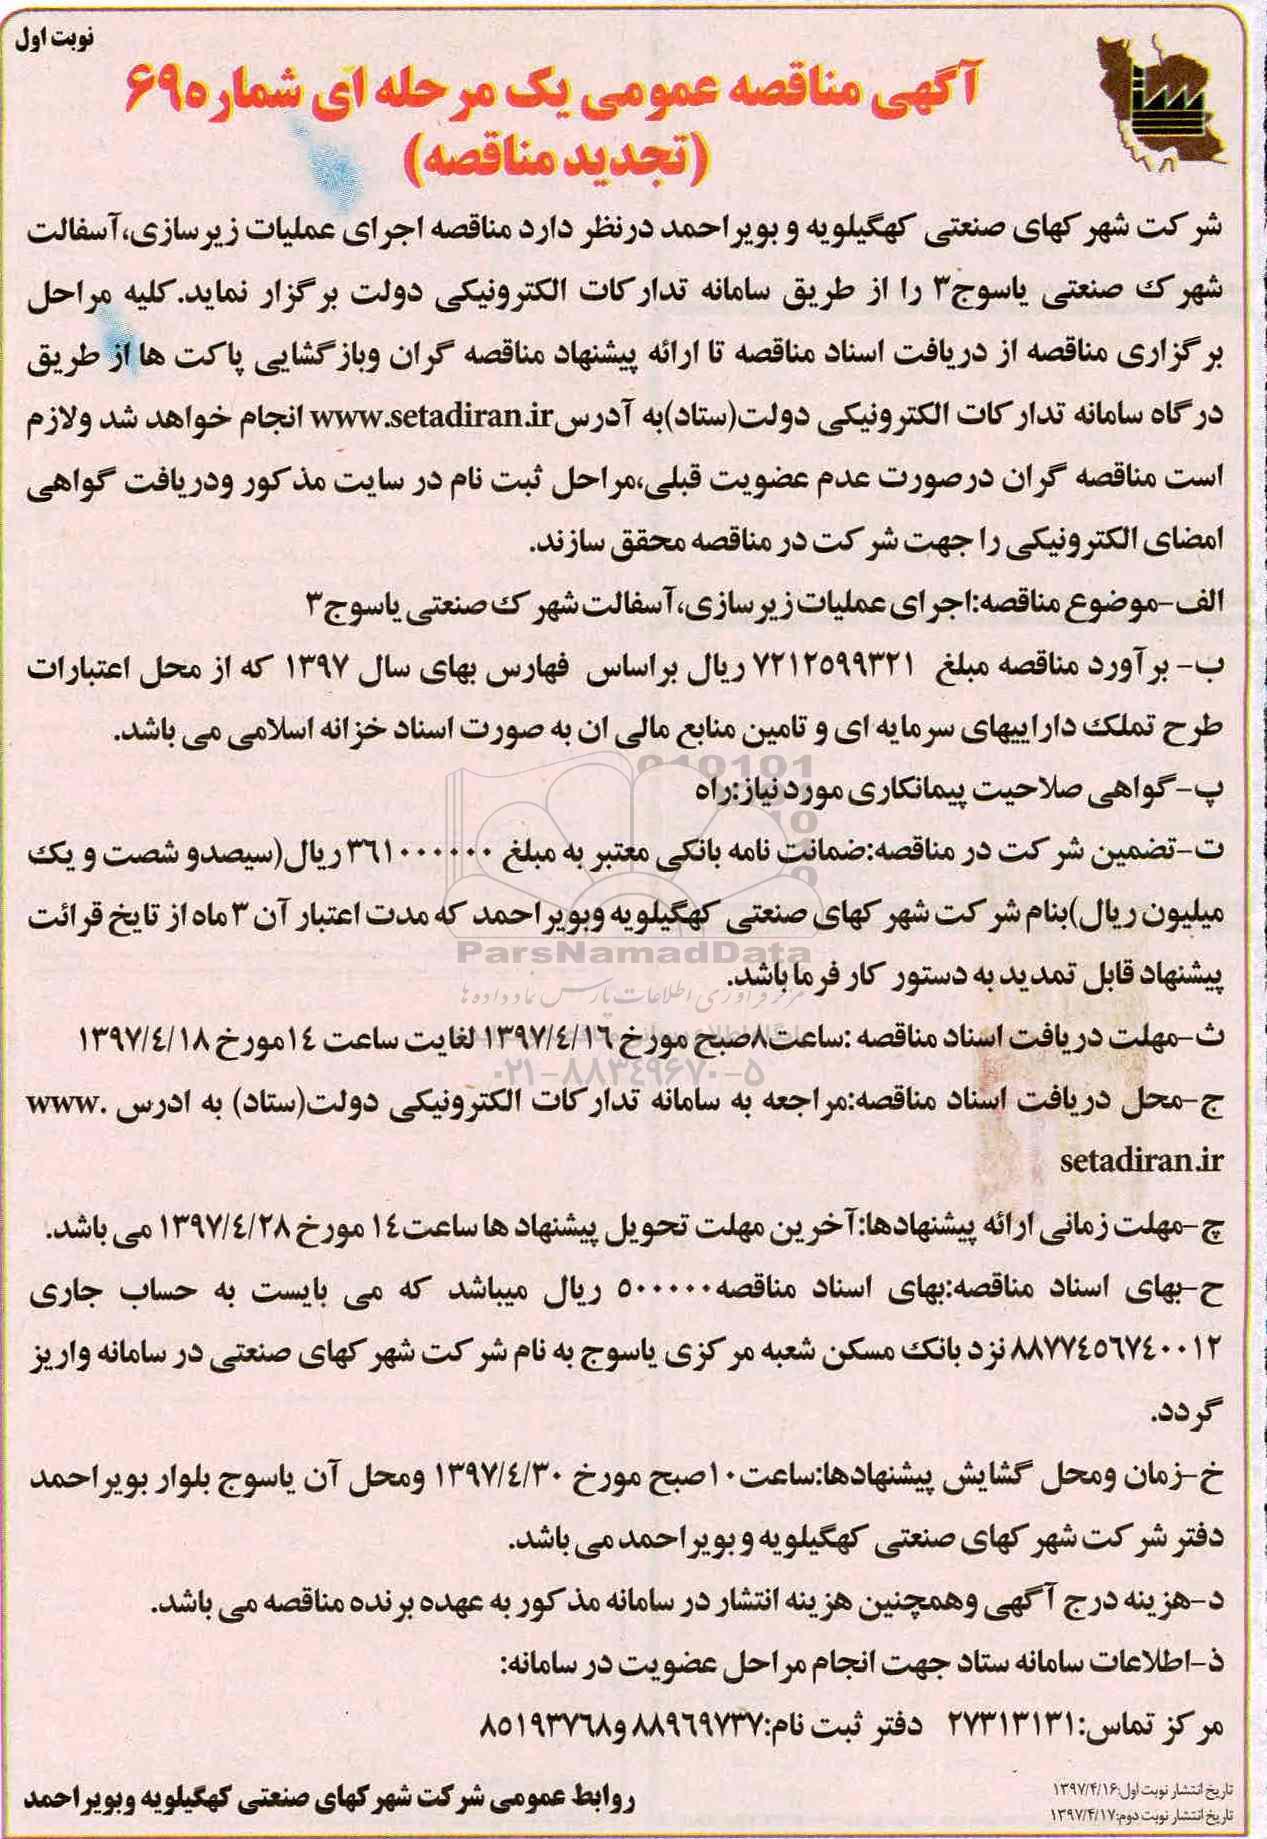 نوبت اول
آگهی مناقصه عمومی یک مرحله ای شماره ۶۹
(تجدید مناقصه)
شرکت شهرکهای صنعتی کهگیلویه و بویراحمد درنظر دارد مناقصه اجرای عملیات زیرسازی،آسفالت
شهرک صنعتی یاسوج۳ را از طریق سامانه تدارکات الکترونیکی دولت برگزار نماید.کلیه مراحل
برگزاری مناقصه از دریافت اسناد مناقصه تا ارائه پیشنهاد مناقصه گران وبازگشایی پاکت ها از طریق
درگاه سامانه تدارکات الکترونیکی دولت(ستاد)به آدرسwww.setadiran.ir انجام خواهد شد ولازم
است مناقصه گران درصورت عدم عضویت قبلی،مراحل ثبت نام در سایت مذکور ودریافت گواهی
امضای الکترونیکی را جهت شرکت در مناقصه محقق سازند.
الف-موضوع مناقصه:اجرای عملیات زیرسازی،آسفالت شهرک صنعتی یاسوج۳
ب- برآورد مناقصه مبلغ ۷۲۱۲۵۹۹۳۲۱ ریال براساس فهارس بهای سال ۱۳۹۷ که از محل اعتبارات
طرح تملک داراییهای سرمایه ای و تامین منابع مالی ان به صورت اسناد خزانه اسلامی می باشد.
پ-گواهی صلاحیت پیمانکاری مورد نیاز:راه
ت-تضمین شرکت در مناقصه:ضمانت نامه بانکی معتبر به مبلغ ۳۶۱۰۰۰۰۰۰ ریال(سیصدو شصت و یک
میلیون ریال)بنام شرکت شهرکهای صنعتی کهگیلویه وبویراحمد که مدت اعتبار آن ۳ ماه از تایخ قرائت
پیشنهاد قابل تمدید به دستور کار فرما باشد.
ParsNamadData
مرکز فرآوری اطلاعات پارس نماد داده ها
ث-مهلت دریافت اسناد مناقصه :ساعت۸صبح مورخ ۱۳۹۷/٤/۱۶ لغایت ساعت ۱٤مورخ ۱۳۹۷/٤/۱۸
۰۲۱-۸۸۳۴۹۶۷۰-۵
ج-محل دریافت اسناد مناقصه:مراجعه به سامانه تدارکات الکترونیکی دولت(ستاد) به ادرس www.
setadiran.ir
چ-مهلت زمانی ارائه پیشنهادها:آخرین مهلت تحویل پیشنهاد ها ساعت۱٤ مورخ ۱۳۹۷/٤/۲۸ می باشد.
ح-بهای اسناد مناقصه:بهای اسناد مناقصه۵۰۰۰۰۰ ریال میباشد که می بایست به حساب جاری
۸۸۷۷٤۵۶۷٤۰۰۱۲ نزد بانک مسکن شعبه مرکزی یاسوج به نام شرکت شهرکهای صنعتی در سامانه واریز
گردد.
خ-زمان ومحل گشایش پیشنهادها:ساعت۱۰صبح مورخ ۱۳۹۷/٤/۳۰ ومحل آن یاسوج بلوار بویراحمد
دفتر شرکت شهرکهای صنعتی کهگیلویه و بویراحمد می باشد.
د-هزینه درج آگهی وهمچنین هزینه انتشار در سامانه مذکور به عهده برنده مناقصه می باشد.
ذ-اطلاعات سامانه ستاد جهت انجام مراحل عضویت در سامانه:
مرکز تماس:۲۷۳۱۳۱۳۱ دفتر ثبت نام:۸۸۹۶۹۷۳۷ و۸۵۱۹۳۷۶۸
تاریخ انتشار نوبت اول:۱۳۹۷/۴/۱۶
تاریخ انتشار نوبت دوم:۱۳۹۷/۴/۱۷
روابط عمومی شرکت شهرکهای صنعتی کهگیلویه وبویراحمد